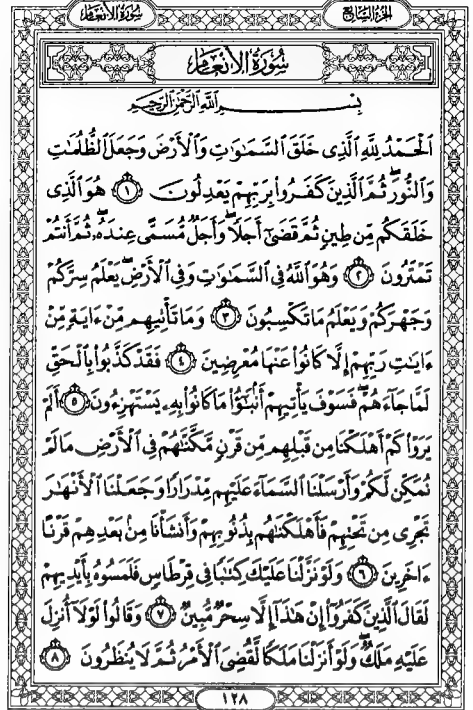 الجزء السابع
سورة الأنعام
سُورَةُ الأَنْعَامِ
بِسْمِ اللَّهِ الرَّحْمَٰنِ الرَّحِيمِ
ٱلْحَمْدُ لِلَّهِ ٱلَّذِى خَلَقَ ٱلسَّمَٰوَٰتِ وَٱلْأَرْضَ وَجَعَلَ ٱلظُّلُمَٰتِ
وَٱلنُّورَ ۖ ثُمَّ ٱلَّذِينَ كَفَرُوا۟ بِرَبِّهِمْ يَعْدِلُونَ ١ هُوَ ٱلَّذِى
خَلَقَكُم مِّن طِينٍ ثُمَّ قَضَىٰٓ أَجَلًا ۖ وَأَجَلٌ مُّسَمًّى عِندَهُۥ ۖ ثُمَّ أَنتُمْ
تَمْتَرُونَ ٢ وَهُوَ ٱللَّهُ فِى ٱلسَّمَٰوَٰتِ وَفِى ٱلْأَرْضِ ۖ يَعْلَمُ سِرَّكُمْ
وَجَهْرَكُمْ وَيَعْلَمُ مَا تَكْسِبُونَ ٣ وَمَا تَأْتِيهِم مِّنْ ءَايَةٍ مِّنْ
ءَايَٰتِ رَبِّهِمْ إِلَّا كَانُوا۟ عَنْهَا مُعْرِضِينَ ٤ فَقَدْ كَذَّبُوا۟ بِٱلْحَقِّ
لَمَّا جَآءَهُمْ ۖ فَسَوْفَ يَأْتِيهِمْ أَنۢبَٰٓؤُا۟ مَا كَانُوا۟ بِهِۦ يَسْتَهْزِءُونَ ٥ أَلَمْ
يَرَوْا۟ كَمْ أَهْلَكْنَا مِن قَبْلِهِم مِّن قَرْنٍ مَّكَّنَّٰهُمْ فِى ٱلْأَرْضِ مَا لَمْ
نُمَكِّن لَّكُمْ وَأَرْسَلْنَا ٱلسَّمَآءَ عَلَيْهِم مِّدْرَارًا وَجَعَلْنَا ٱلْأَنْهَٰرَ
تَجْرِى مِن تَحْتِهِمْ فَأَهْلَكْنَٰهُم بِذُنُوبِهِمْ وَأَنشَأْنَا مِنۢ بَعْدِهِمْ قَرْنًا
ءَاخَرِينَ ٦ وَلَوْ نَزَّلْنَا عَلَيْكَ كِتَٰبًا فِى قِرْطَاسٍ فَلَمَسُوهُ بِأَيْدِيهِمْ
لَقَالَ ٱلَّذِينَ كَفَرُوٓا۟ إِنْ هَٰذَآ إِلَّا سِحْرٌ مُّبِينٌ ٧ وَقَالُوا۟ لَوْلَآ أُنزِلَ
عَلَيْهِ مَلَكٌ ۖ وَلَوْ أَنزَلْنَا مَلَكًا لَّقُضِىَ ٱلْأَمْرُ ثُمَّ لَا يُنظَرُونَ ٨
١٢٨